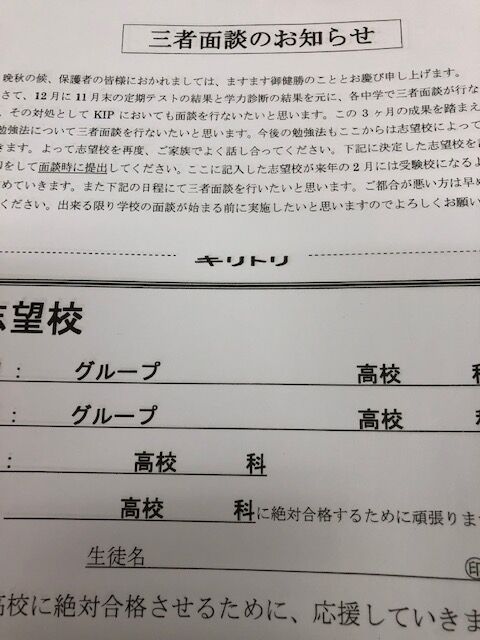 三者面談のお知らせ
晩秋の候、保護者の皆様におかれましては、ますます御健勝のこととお慶び申し上げます。
さて、12月に11月末の定期テストの結果と学力診断の結果を元に、各中学で三者面談が行な
、その対処として KIP においても面談を行ないたいと思います。この3ヶ月の成果を踏まえ
勉強法について三者面談を行ないたいと思います。今後の勉強法もここからは志望校によって
きます。よって志望校を再度、ご家族でよく話し合ってください。下記に決定した志望校を
をして面談時に提出してください。ここに記入した志望校が来年の2月には受験校になるよ
めていきます。また下記の日程にて三者面談を行いたいと思います。ご都合が悪い方は早め
ください。出来る限り学校の面談が始まる前に実施したいと思いますのでよろしくお願い
キリトリ
志望校
： グループ 高校 科
： グループ 高校 科
： 高校 科
高校 科に絶対合格するために頑張りま
生徒名 ㊞
高校に絶対合格させるために、応援していきま